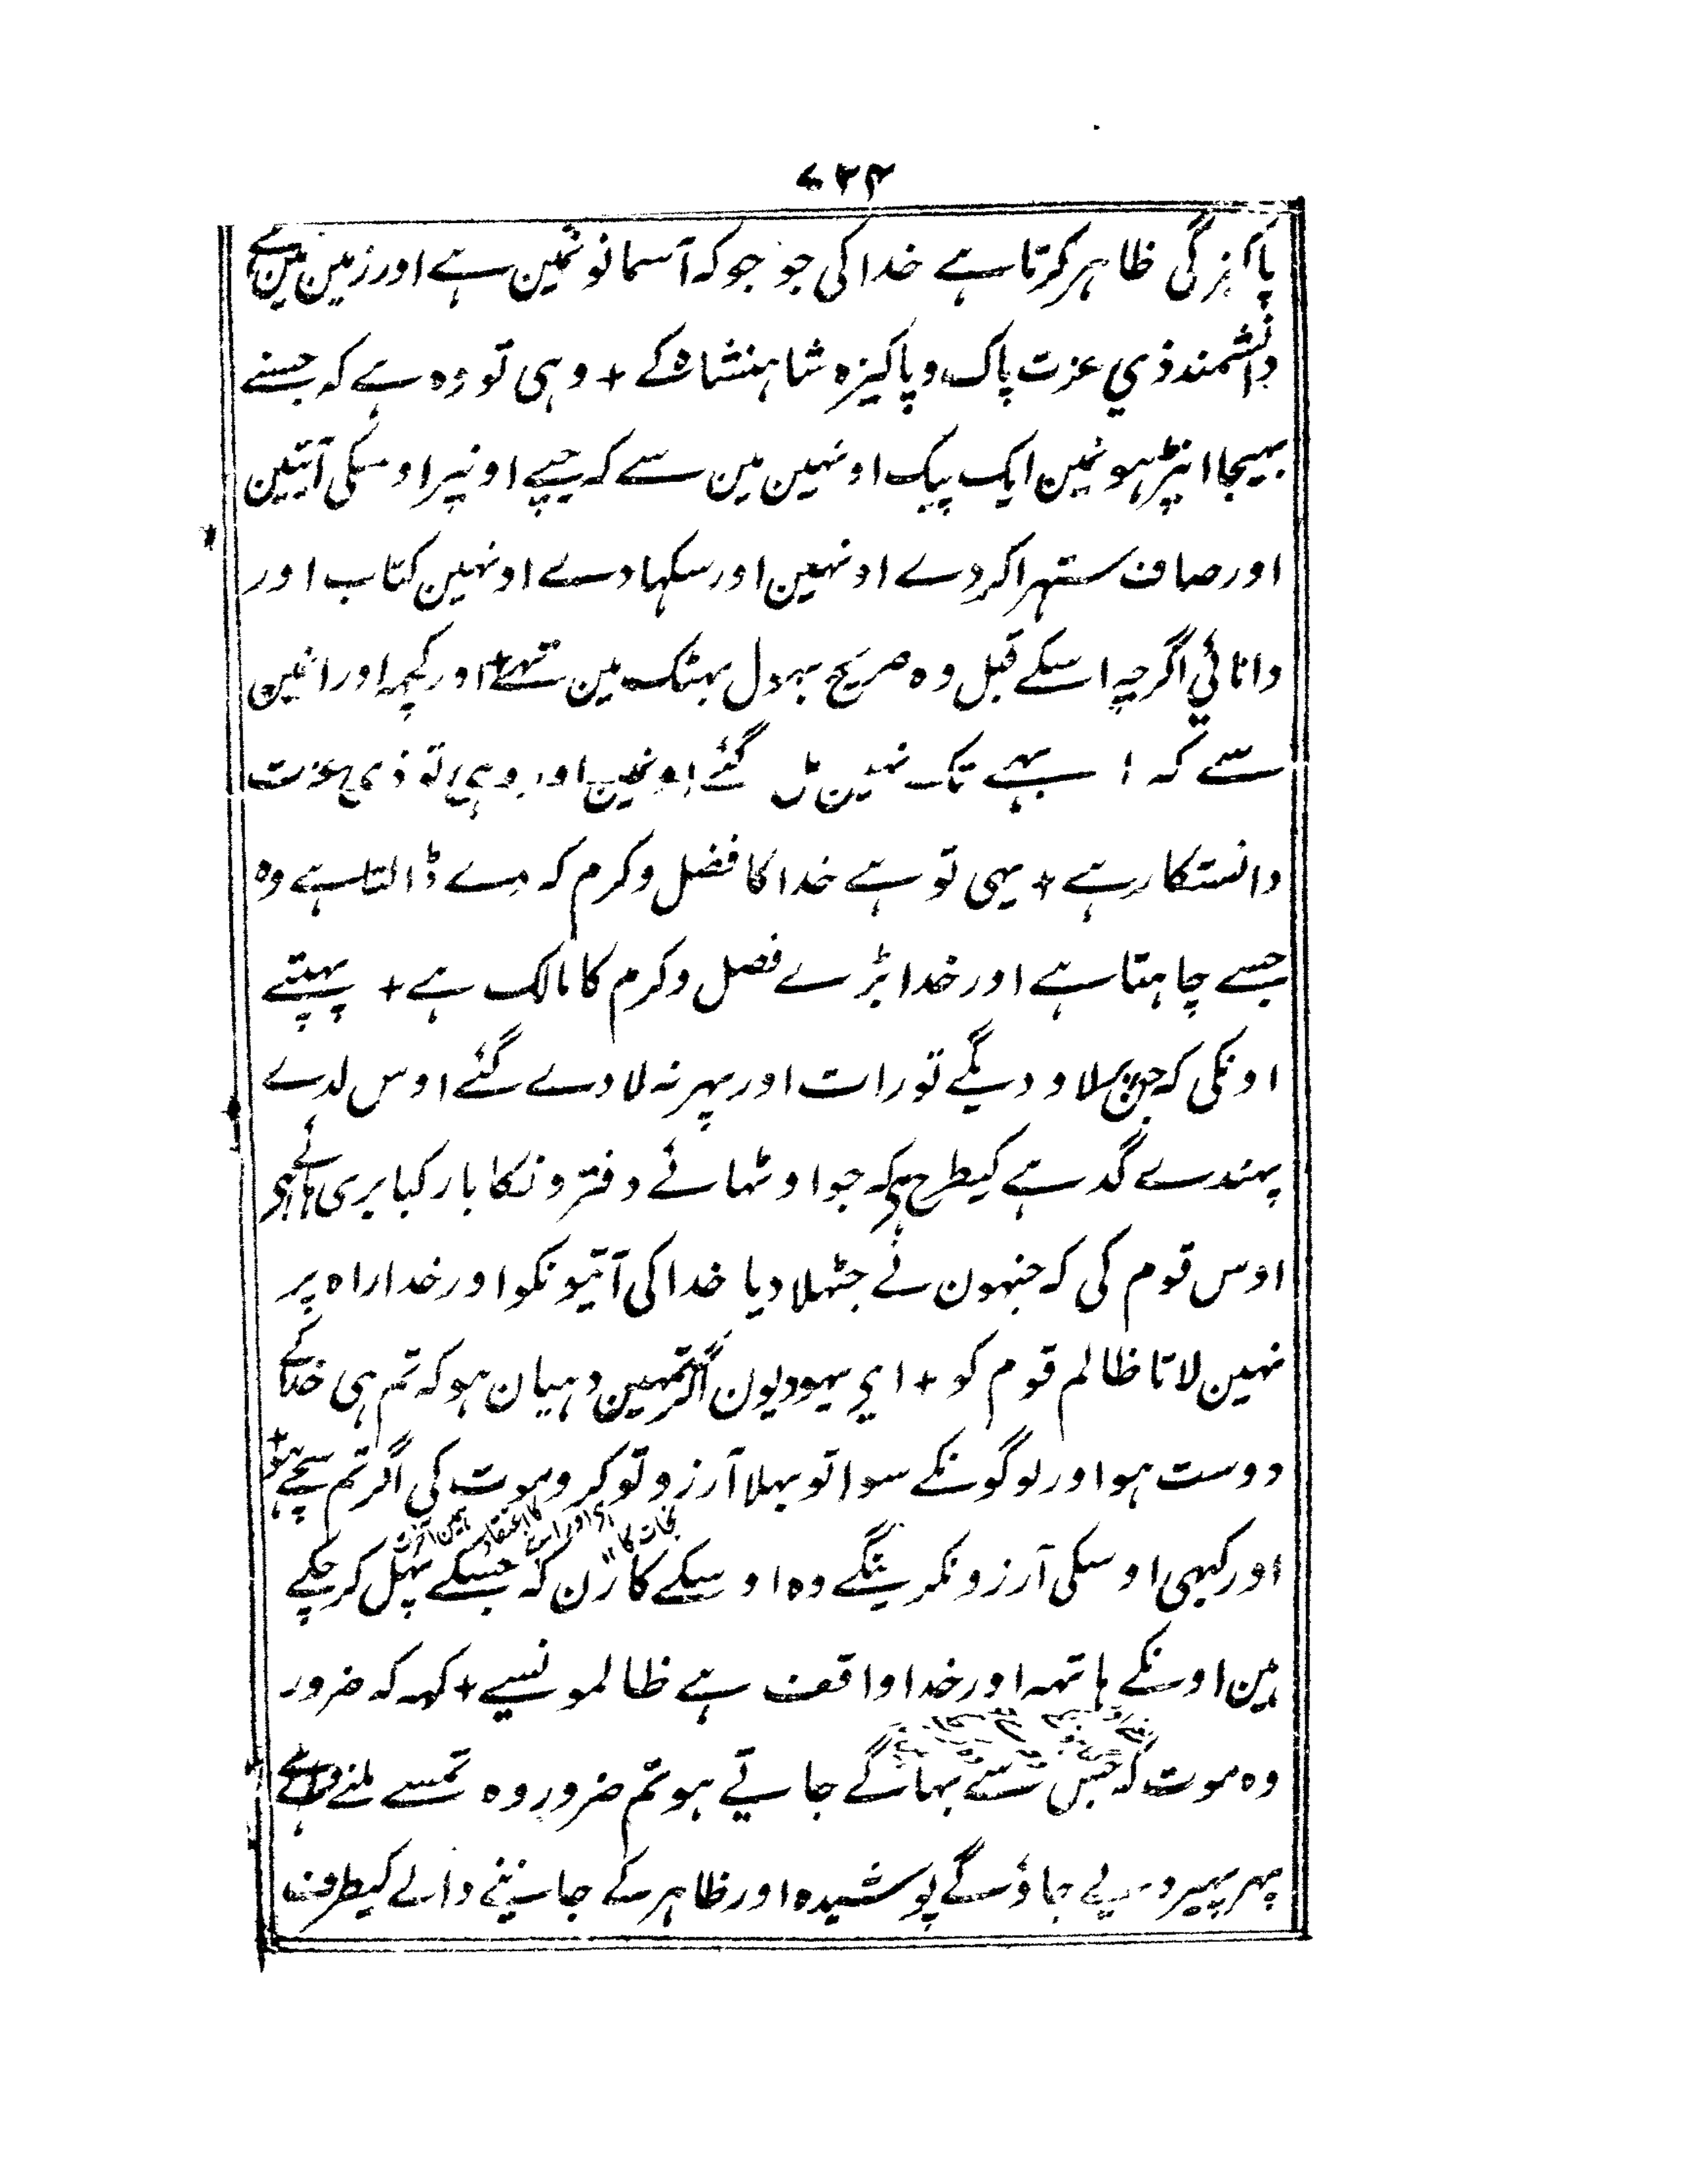 ۷۲۴
پاکیزگی ظاہر کرتا ہے خدا کی جو جو کہ آسمانونمین ہے اور زمین مین ہے
دانشمند ذي عزت پاک و پاکیزہ شاہنشاہ کے + وہی تو وہ ہے کہ جسنے
بھیجا انپڑہونمین ایک پیک اونہین مین سے کہ جپے اونپر اوسکی آیتین
اور صاف ستہرا کر دے اونہین اور سکہا دے اونہین کتاب اور
دانائي اگرچہ اسکے قبل وہ صریح بہول بہٹک مین تہے + اور کچہہ اور انمین
سے کہ تک نہین مل گئے اونمین اور وہی تو ذی عزت
دانستکار ہے + یہی تو ہے خدا کا فضل و کرم کہ دے ڈالتا ہے وہ
جسے چاہتا ہے اور خدا بڑے فضل و کرم کا مالک ہے + پہبتے
اونکی کہ جن پر لاو دیگے تورات اور پہر نہ لادے گئے اوس لدے
پہندے گدہے کیطرح ہے کہ جو اوٹہائے دفترونکا بار کیا بری
اوس قوم کی کہ جنہون نے جٹہلا دیا خدا کی آیتیونکو اور خدا راہ پر
نہین لاتا ظالم قوم کو + اي یہودیون اگر تمہین دہیان ہو کہ تم ہی خدا کے
دوست ہو اور لوگونکے سوا تو بہلا آرزو تو کرو موت کی اگر تم سچے ہو +
اور کبہی اوسکی آرزو نکرینگے وہ اوسکے کارن کہ جسکے پہل کر چکے
ہین اونکے ہاتہہ اور خدا واقف ہے ظالمونسے + کہہ کہ ضرور
وہ موت کہ جس سے بہاگے جاتے ہو تم ضرور وہ تمسے ملنے والے ہے
پہر پہیر دیے جاؤگے پوشیدہ اور ظاہر کے جاننے والے کیطرف